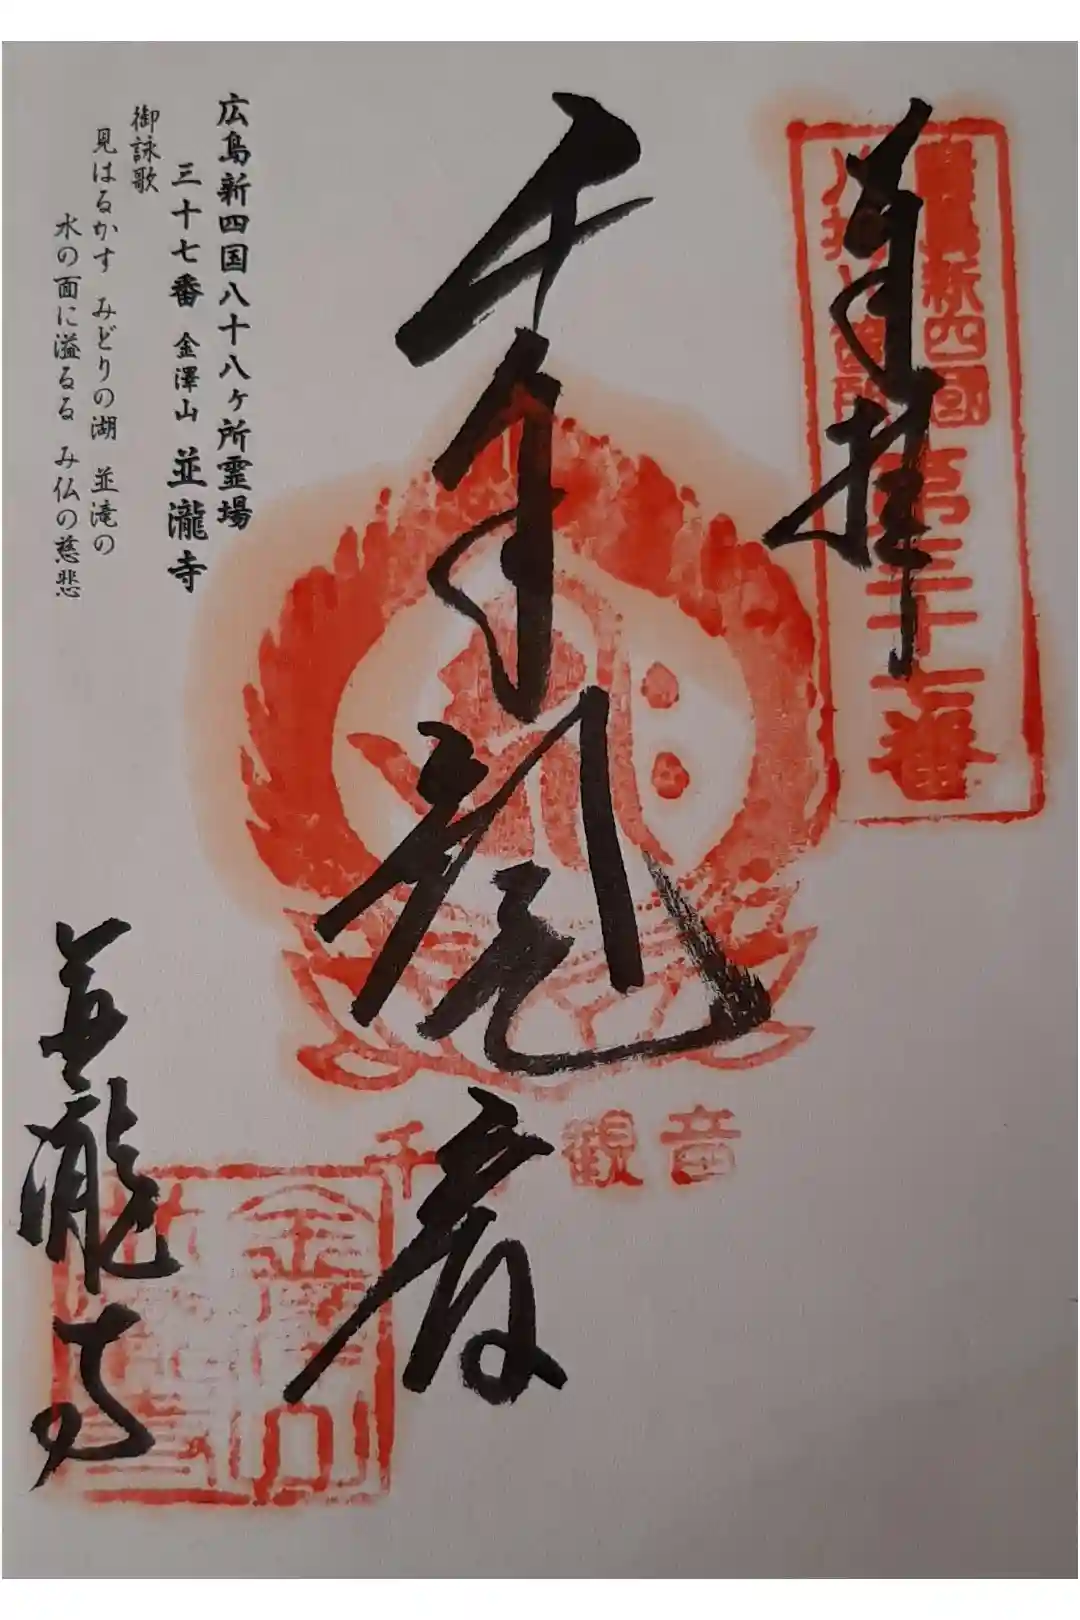 奉拝
廣島新四國
八拾八箇所
第三十七番
千手観音
千手観音
広島新四国八十八ヶ所霊場
三十七番 金澤山 並瀧寺
御詠歌
見はるかす みどりの湖 並滝の
水の面に溢るる み仏の慈悲
並瀧寺
金澤山
並瀧寺